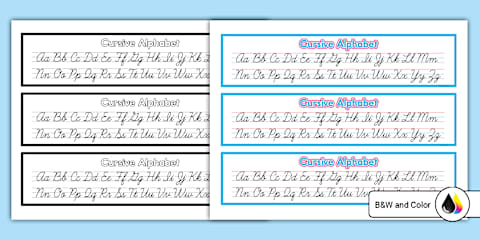 Cursive Alphabet
Aa Bb Cc Dd Ee Ff Gg Hh Ii Jj Kk L
Nn Oo Pp Qq Rr Ss Tt Uu Vv Ww Xx
Cursive Alphabet
Aa Bb Cc Dd Ee Ff Gg Hh Ii Jj Kk L
Nn Oo Pp Qq Rr Ss Tt Uu Vv Ww Xx
Cursive Alphabet
Aa Bb Cc Dd Ee Ff Gg Hh Ii Jj Kk L
Nn Oo Pp Qq Rr Ss Tt Uu Vv Ww Xx
Cursive Alphabet
Aa Bb Cc Dd Ee Ff Gg Hh Ii Jj Kk Ll Mm
Nn Oo Pp Qq Rr Ss Tt Uu Vv Ww Xx Yy Zz
Cursive Alphabet
Aa Bb Cc Dd Ee Ff Gg Hh Ii Jj Kk Ll Mm
Nn Oo Pp Qq Rr Ss Tt Uu Vv Ww Xx Yy Zz
Cursive Alphabet
Aa Bb Cc Dd Ee Ff Gg Hh Ii Jj Kk Ll Mm
Nn Oo Pp Qq Rr Ss Tt Uu Vv Ww Xx
B&W and Color